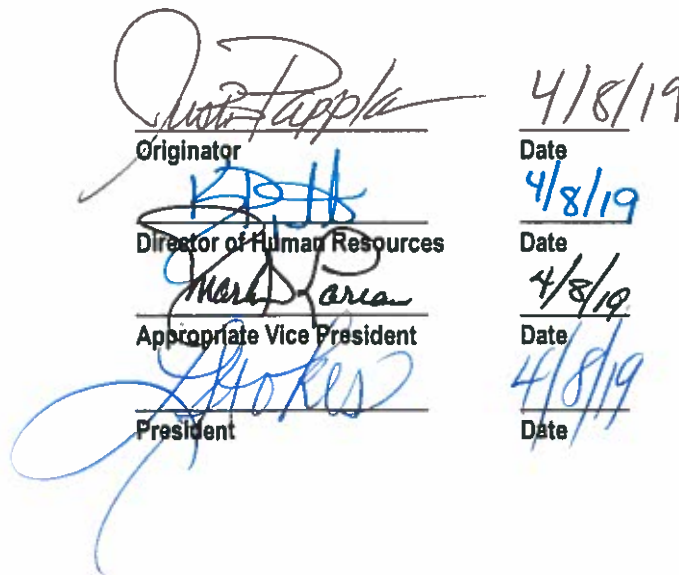 4/8/19
Originator Date
4/8/19
Director of Human Resources Date
4/8/19
Appropriate Vice President Date
4/8/19
President Date